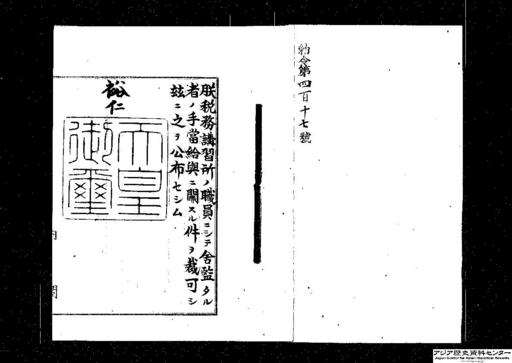 勅令第四百十七號
朕税務講習所ノ職員ニシテ舍監タル
者ノ手當給與ニ關スル件ヲ裁可シ
玆ニ之ヲ公布セシム
裕仁
天皇
御璽
内閣
アジア歴史資料センター
Japan Center for Asian Historical Records